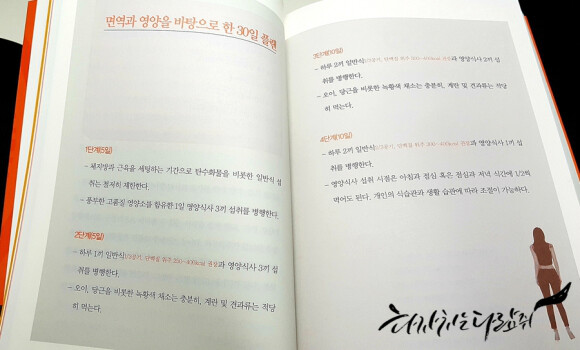 면역과 영양을 바탕으로 한 30일 플랜
1단계(5일)
- 체지방과 근육을 세팅하는 기간으로 탄수화물을 비롯한 일반식 섭
취는 철저히 제한한다.
- 풍부한 고품질 영양소를 함유한 1일 영양식사 3끼 섭취를 병행한다.
2단계(5일)
- 하루 1끼 일반식(1/2공기, 단백질 위주 350~400kcal 권장)과 영양식사 3끼 섭
취를 병행한다.
- 오이, 당근을 비롯한 녹황색 채소는 충분히, 계란 및 견과류는 적당
히 먹는다.
3단계(10일)
- 하루 2끼 일반식(1/2공기, 단백질 위주 kcal 권장)과 영양식사 2끼 섭
취를 병행한다.
- 오이, 당근을 비롯한 녹황색 채소는 충분히, 계란 및 견과류는 적당
히 먹는다.
4단계(10일)
- 하루 2끼 일반식(1/2공기, 단백질 위주 kcal 권장)과 영양식사 1끼 섭
취를 병행한다.
- 영양식사 섭취 시점은 아침과 점심 혹은 점심과 저녁 식간에 1/2씩
먹어도 된다. 개인의 식습관과 생활 습관에 따라 조절이 가능하다.